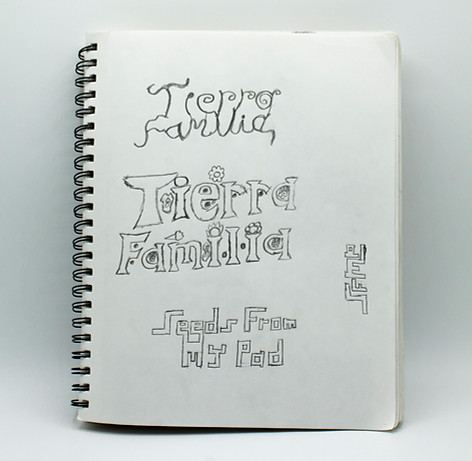 Tierra
Familia
Tierra
Familia
Seeds From
My Pad
SFMP